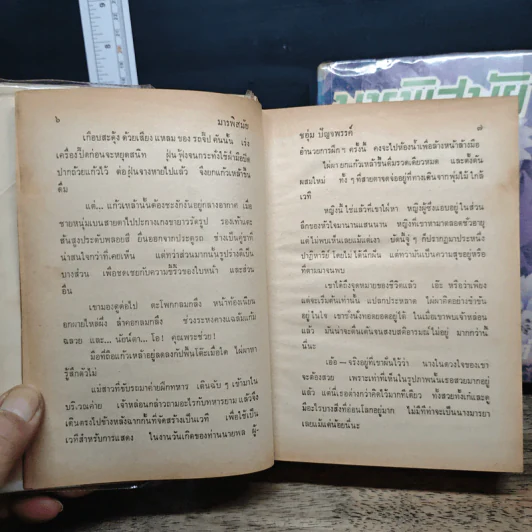 ๖ มารพิสมัย
เกือบสะดุ้ง ด้วยเสียง แหลม ของ รถจิ๊ป คันนั้น เร่ง
เครื่องปี๊ดก่อนจะหยุดสนิท ฝุ่นฟุ้งจนกระทั่งใช้ฝ่ามือปิด
ปากถ้วยแก้วไว้ ต่อฝุ่นจางหายไปแล้ว จึงยกแก้วเหล้าขึ้น
ดื่ม
แต่... แก้วเหล้านั้นต้องชะงักงันอยู่กลางอากาศ เมื่อ
ชายหนุ่มเบนสายตาไปปะกางเกงขายาวรัดรูป รองเท้าแตะ
ส้นสูงประดับพลอยสี ยื่นออกจากประตูรถ ช่างเป็นคู่ขาที่
น่าสนใจกว่าที่เคยเห็น แต่ทว่าส่วนมากนั้นรูปร่างดีเป็น
บางส่วน เพื่อชดเชยกับความขี้ริ้วของใบหน้า และส่วน
อื่น
เขามองดูต่อไป ตะโพกกลมกลึง หน้าท้องเนียน
อกผายไหล่ผึ่ง ลำคอกลมกลึง ช่วงระหว่างคางเฉลิมแก้ม
ฉลวย และ... นัยน์ตา... โอ! คุณพระช่วย!
มือที่ถือแก้วเหล้าอยู่ลดลงกับพื้นโต๊ะเมื่อใด ไผ่ผาหา
รู้สึกตัวไม่
แม่สาวที่ขับรถมาค่ายฝึกทหาร เดินฉับ ๆ เข้ามาใน
บริเวณค่าย เจ้าหล่อนกล่าวถามอะไรกับทหารยาม แล้วจึง
เดินตรงไปข้างหลังฉากกั้นที่จัดสร้างเป็นเวที เพื่อใช้เป็น
เวทีสำหรับการแสดง ในงานวันเกิดของท่านนายพล ผู้-
ชอุ่ม ปัญจพรรค์ ๗
อำนวยการฝึกฯ ครั้งนี้ คงจะไปห้องน้ำเพื่อล้างหน้าล้างมือ
ไผ่ผา ยกแก้วเหล้าขึ้นดื่มรวดเดียวหมด และสั่งคน
ผสมใหม่ ทั้ง ๆ ที่สายตาจดจ้องอยู่ที่ทางเดินจากพุ่มไม้ ใกล้
เวที
หญิงนี้ ใช่แล้วที่เขาใฝ่หา หญิงผู้ซึ่งแอบอยู่ในส่วน
ลึกของหัวใจมานานแสนนาน หญิงที่เขาหามาตลอดชั่วอายุ
แต่ไม่พบเห็นเลยแม้แต่เงา บัดนี้จู่ ๆ ก็ปรากฏมาประหนึ่ง
ปาฏิหาริย์ โดยไม่ได้นึกฝัน แต่ทว่ามันเป็นความสุขอยู่หรือ
ที่ตามเขาจนพบ
เขาได้ถึงจุดหมายของชีวิตแล้ว เอ๊ะ หรือว่าเพียง
แต่จะเริ่มต้นเท่านั้น แปลกประหลาด ไผ่ผาคิดอย่างขำขัน
อยู่ในใจ เขายังนั่งทอดยอดอยู่ได้ ในเมื่อเขาพบเจ้าหล่อน
แล้ว มันน่าจะตื่นเต้นจนสงบสติอารมณ์ไม่อยู่ มากกว้านี้
นี่นะ
เอ้อ—จริงอยู่ที่เขาฝันไว้ว่า นางในดวงใจของเขา
จะต้องสวย เพราะเท่าที่เห็นในรูปภาพนั้นเธอสวยมากอยู่
แล้ว แต่นี่เธออย่างกว่าคิดไว้มากทีเดียว ทั้งสวยทั้งเก๋และดู
มีอะไรบางสิ่งที่อ่อนโลกอยู่มาก ไม่มีทีท่าจะเป็นนางมารยา
เลยแม้แต่น้อยนี่นะ
มารพิสมัย